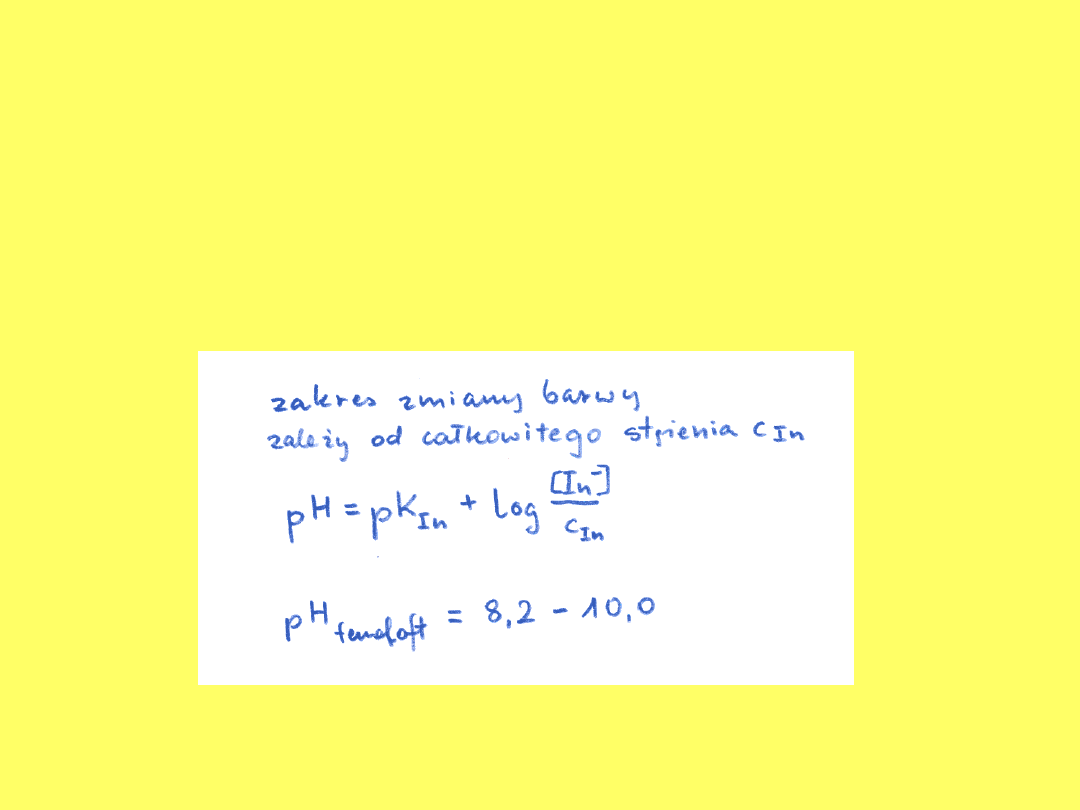 zakres zmiany barwy
zależy od całkowitego stężenia c In
pH = pK_In + log [In⁻] / c_In
pH fenoloft = 8,2 - 10,0